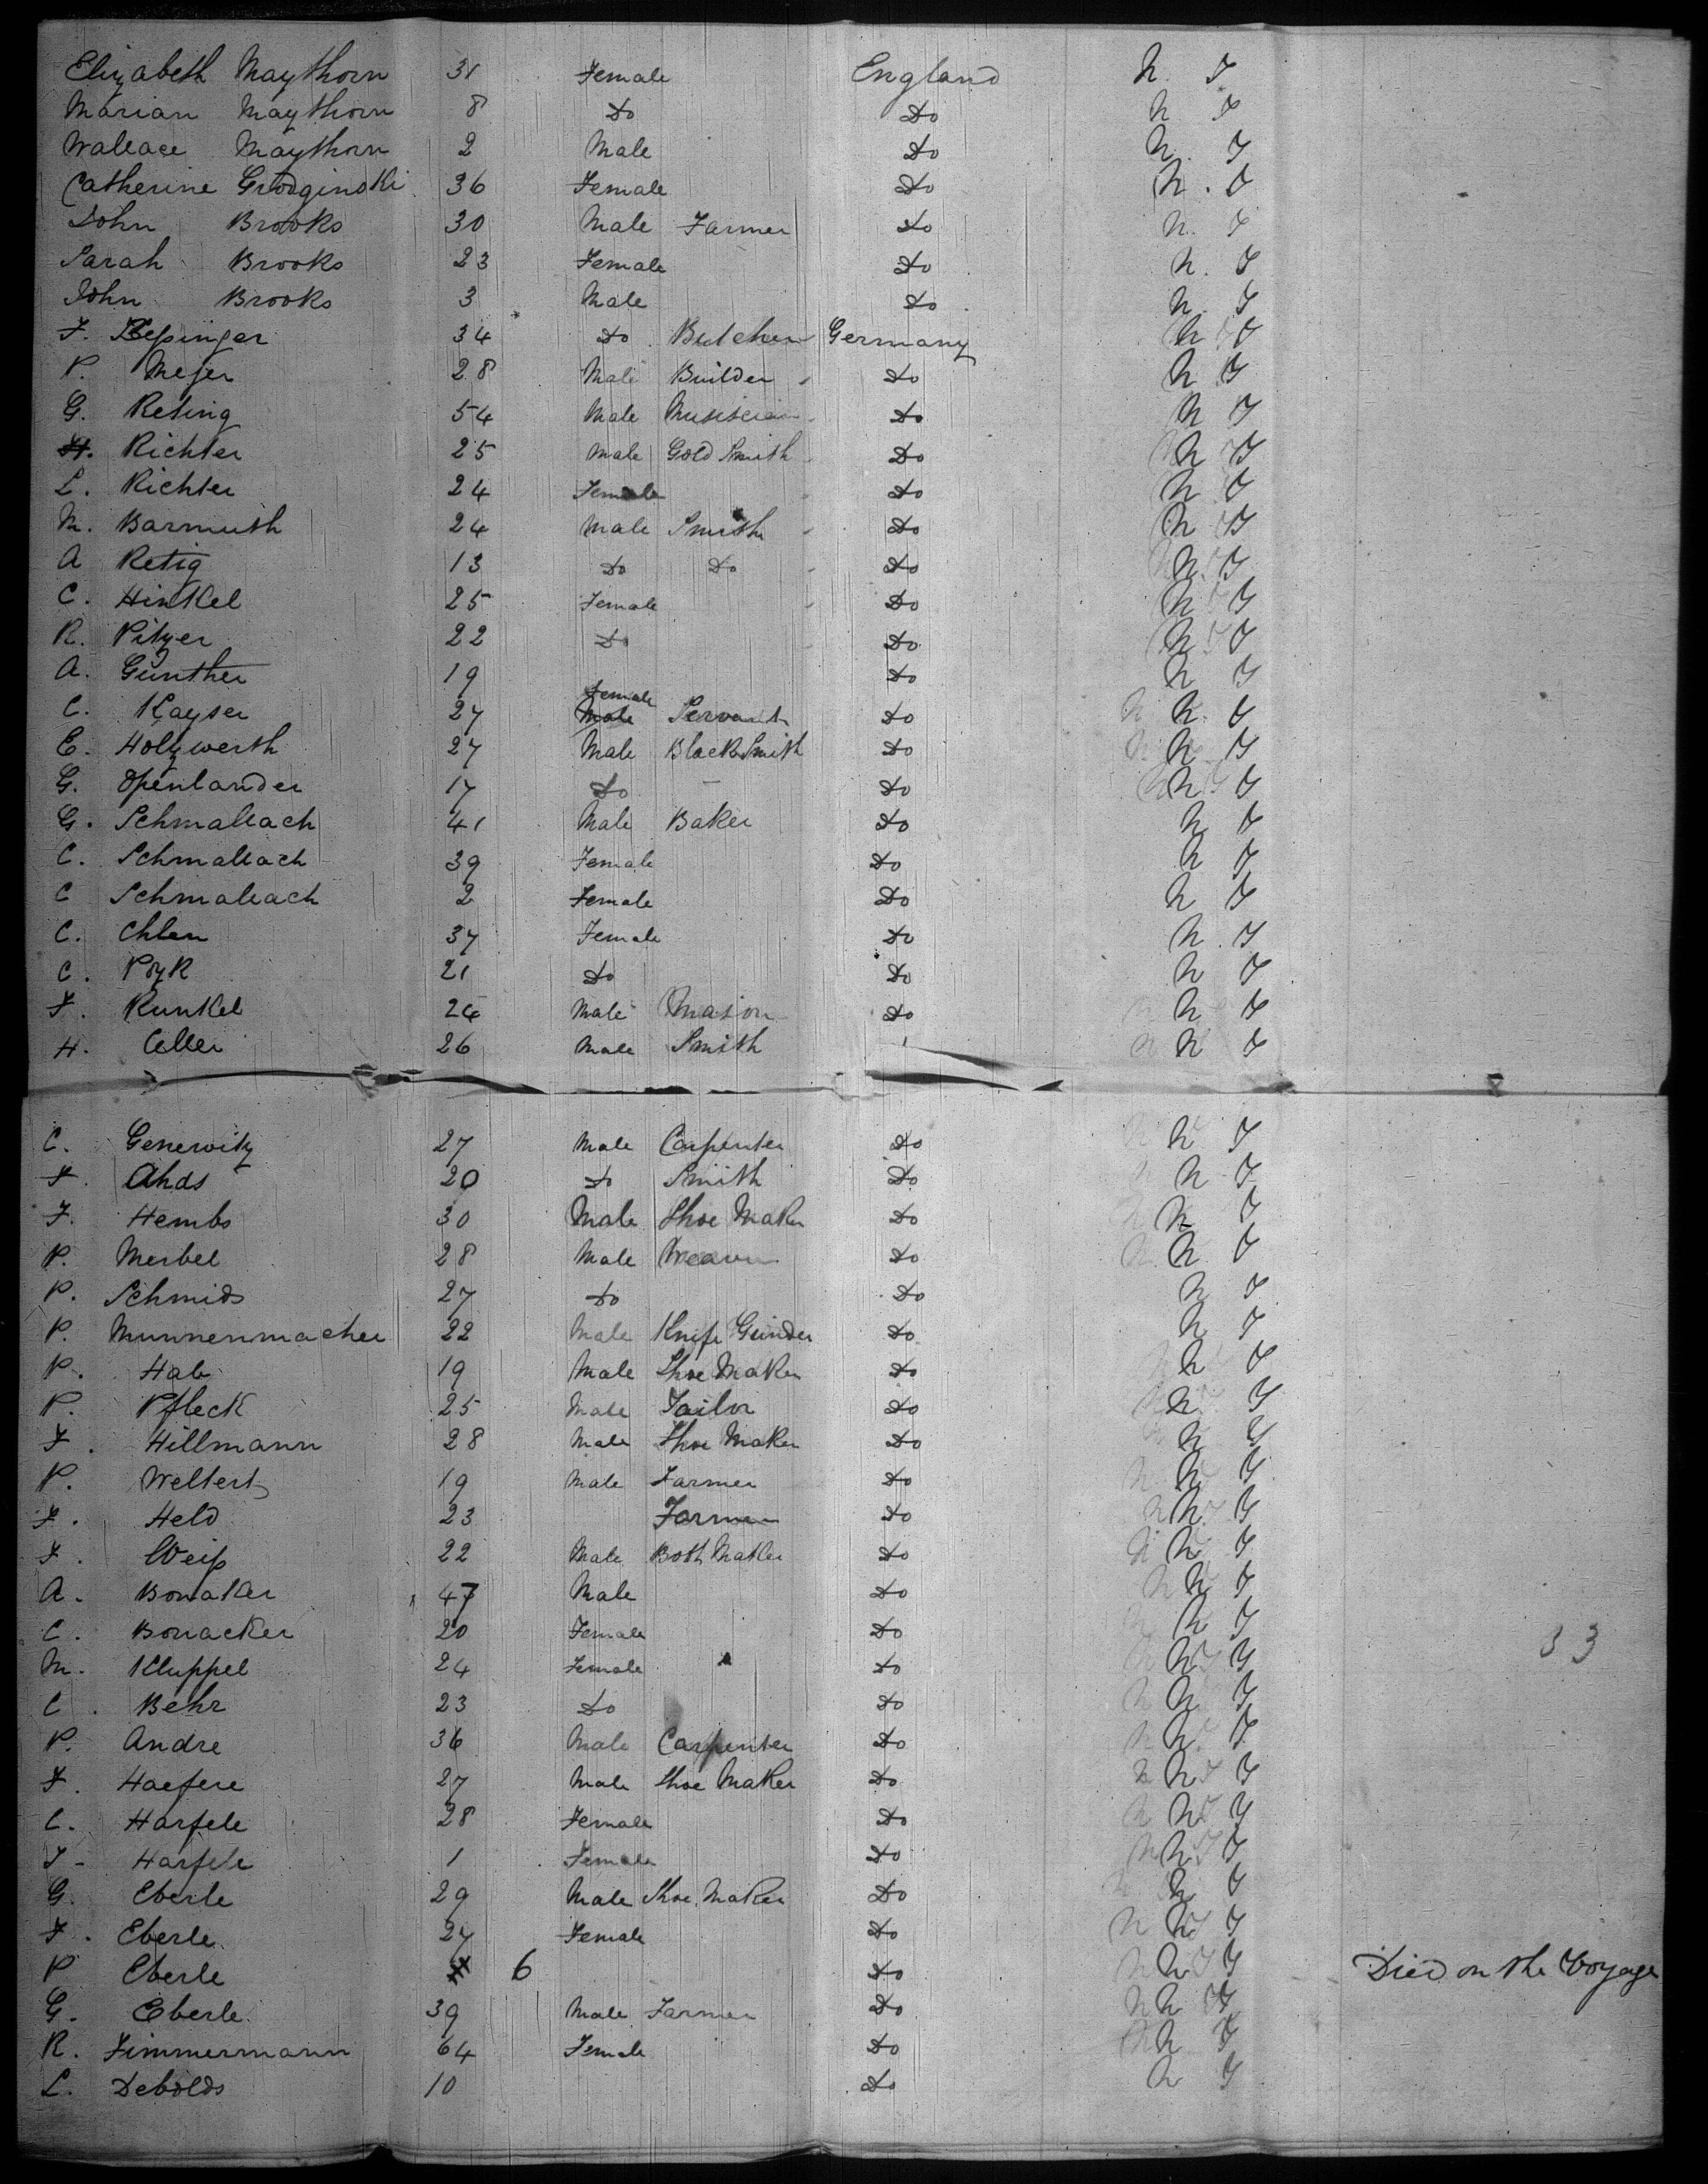 Elizabeth Maythorn 31 Female England N. Y
Marian Maythorn 8 Do Do N Y
Wallace Maythorn 2 Male Do N. Y
Catherine Grodginski 36 Female Do N. Y
John Brooks 30 Male Farmer Do N. Y
Sarah Brooks 23 Female Do N. Y
John Brooks 3 Male Do N. Y
F. 34 Do Butcher Germany N Y
P. Mejer 28 Male Builder Do N Y
G. Reting 54 Male Musician Do N Y
H. Richter 25 Male Gold Smith Do N Y
L. Richter 24 Female Do N Y
M. Barmuth 24 Male Smith Do N Y
A Retig 13 Do Do Do N Y
C. Hinkel 25 Female Do N Y
R. Pitzer 22 Do Do N Y
A. Günther 19 Do N Y
C. Kayser 27 Female Servant Do N Y
E. Holzwerth 27 Male BlackSmith Do N Y
G. Openlander 17 Do Do N Y
G. Schmallach 41 Male Baker Do N Y
C. Schmallach 39 Female Do N Y
C Schmaleach 2 Female Do N Y
C. Chlen 37 Female Do N Y
C. 21 Do Do N Y
F. Kunkel 24 Male Mason Do N Y
H. 26 Male Smith N Y
C. Generwitz 27 Male Carpenter Do N Y
F. Ahds 20 Do Smith Do N Y
F. Hembs 30 Male Shoe Maker Do N Y
P. Merbel 28 Male Weaver Do N Y
P. Schmids 27 Do Do N Y
P. Munnenmacher 22 Male Knife Grinder Do N Y
P. Hab 19 Male Shoe Maker Do N Y
P. Pfleck 25 Male Tailor Do N Y
F. Hillmann 28 Male Shoe Maker Do N Y
P. Weltert 19 Male Farmer Do N Y
F. Held 23 Farmer Do N Y
F. Weiß 22 Male Both Maker Do N Y
A. Bonaker 47 Male Do N Y
C. Bonacker 20 Female Do N Y
M. Kluppel 24 Female Do N Y
C. Behr 23 Do Do N Y
P. Andre 36 Male Carpenter Do N Y
F. Haefere 27 Male Shoe Maker Do N Y
C. Harfele 28 Female Do N Y
F. Harfele 1 Female Do N Y
G. Eberle 29 Male Shoe Maker Do N Y
F. Eberle 27 Female Do N Y
P Eberle 6 Do N Y Died on the Voyage
G. Eberle 39 Male Farmer Do N Y
R. Zimmermann 64 Female Do N Y
L. Debolds 10 Do N Y